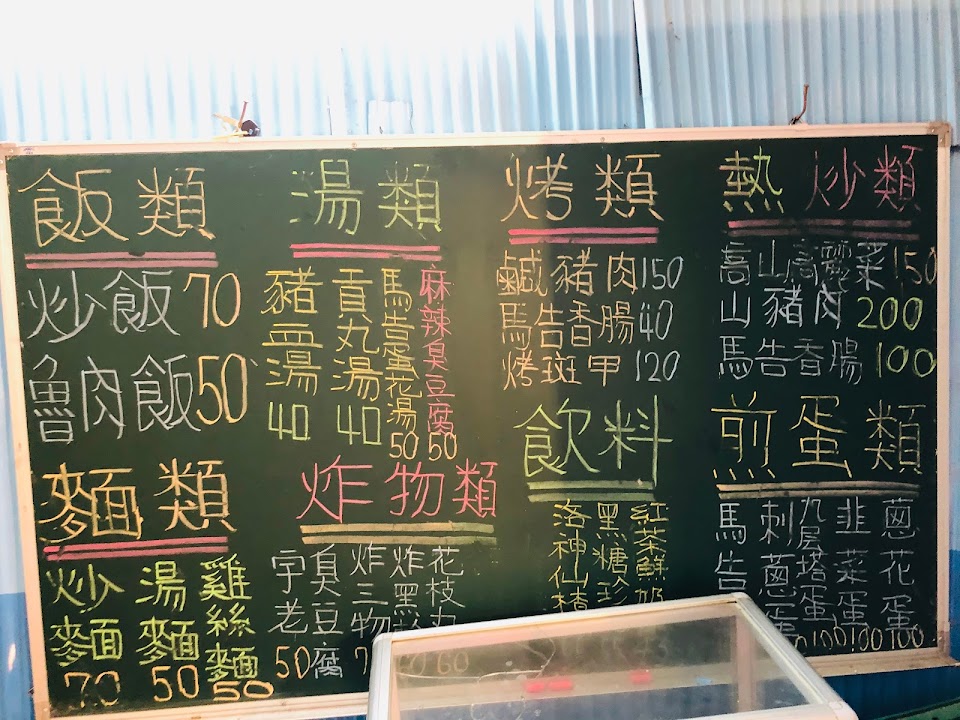 飯類
炒飯70
魯肉飯50
湯類
豬血湯40
貢丸湯40
馬告蛋花湯50
麻辣臭豆腐50
烤類
鹹豬肉150
馬告香腸40
烤斑甲120
熱炒類
高山高麗菜150
山豬肉200
馬告香腸100
麵類
炒麵70
湯麵50
雞絲麵50
炸物類
老
臭豆腐50
炸三物
炸黑
花枝丸60
飲料
洛神仙楂
黑糖珍
紅茶
煎蛋類
馬告
刺蔥蛋
九层塔蛋100
韭菜蛋100
蔥花蛋100